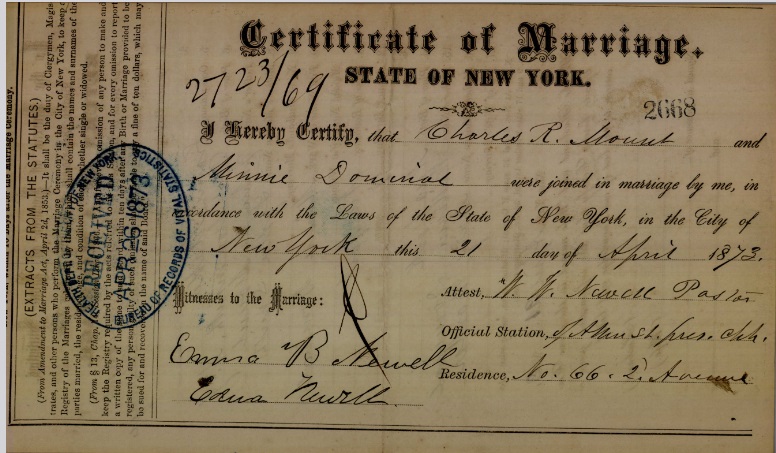 Certificate of Marriage.
STATE OF NEW YORK.
2723/69
2668
I Hereby Certify, that Charles R. Mount and
Minnie Dominal were joined in marriage by me, in
accordance with the Laws of the State of New York, in the City of
New York this 21 day of April 1873.
Witnesses to the Marriage:
Emma B Newell
Edna Newell.
Attest, W. W. Newell Pastor
Official Station, of Allen st. pres. chh.
Residence, No. 66. 2d Avenue
(EXTRACTS FROM THE STATUTES.)
(From Amendment to Marriage Act, April 24, 1853.)—It shall be the duty of Clergymen, Magis-
trates, and other persons who perform the Marriage Ceremony in the City of New York, to keep
Registry of the Marriages
parties married, the and condition of whether single or widowed.
(From § 13, Chap.
keep the Registry required by the acts
a written copy of the within ten days after any Birth or Marriage provided to be
registered, any person
be sued for and recovered in the name of said Board
RECEIVED
APR 25 1873
BUREAU OF RECORDS OF VITAL STATISTICS